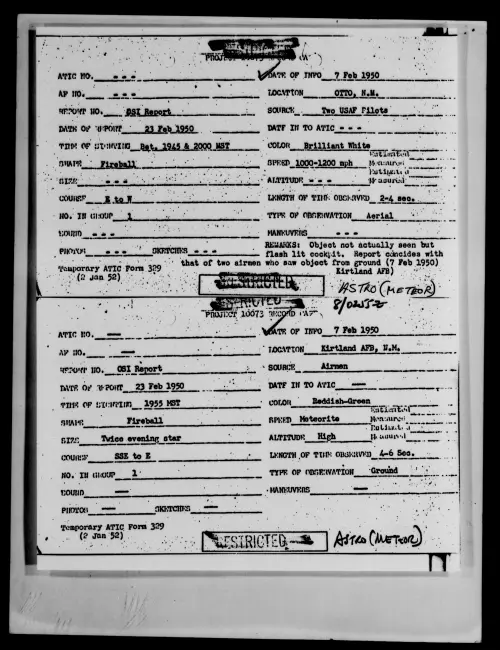 PROJECT 10073 RECORD CARD
ATIC NO. - - -
DATE OF INFO 7 Feb 1950
AF NO. - - -
LOCATION OTTO, N.M.
REPORT NO. OSI Report
SOURCE Two USAF Pilots
DATE OF REPORT 23 Feb 1950
DATE IN TO ATIC - - -
TIME OF SIGHTING Bet. 1945 & 2000 MST
COLOR Brilliant White
SHAPE Fireball
SPEED 1000-1200 mph Estimated Measured
SIZE - - -
ALTITUDE - - - Estimated Measured
COURSE E to W
LENGTH OF TIME OBSERVED 2-4 sec.
NO. IN GROUP 1
TYPE OF OBSERVATION Aerial
SOUND - - -
MANEUVERS - - -
PHOTOS - - - SKETCHES - - -
REMARKS: Object not actually seen but
flash lit cockpit. Report concides with
that of two airmen who saw object from ground (7 Feb 1950)
Kirtland AFB)
Temporary ATIC Form 329
(2 Jan 52)
RESTRICTED
ASTRO (METEOR)
RESTRICTED
PROJECT 10073 RECORD CARD
ATIC NO. —
DATE OF INFO 7 Feb 1950
AF NO. —
LOCATION Kirtland AFB, N.M.
REPORT NO. OSI Report
SOURCE Airmen
DATE OF REPORT 23 Feb 1950
DATE IN TO ATIC —
TIME OF SIGHTING 1955 MST
COLOR Reddish-Green
SHAPE Fireball
SPEED Meteorite Estimated Measured
SIZE Twice evening star
ALTITUDE High Estimated Measured
COURSE SSE to E
LENGTH OF TIME OBSERVED 4-6 Sec.
NO. IN GROUP 1
TYPE OF OBSERVATION Ground
SOUND —
MANEUVERS —
PHOTOS — SKETCHES —
Temporary ATIC Form 329
(2 Jan 52)
RESTRICTED
ASTRO (METEOR)